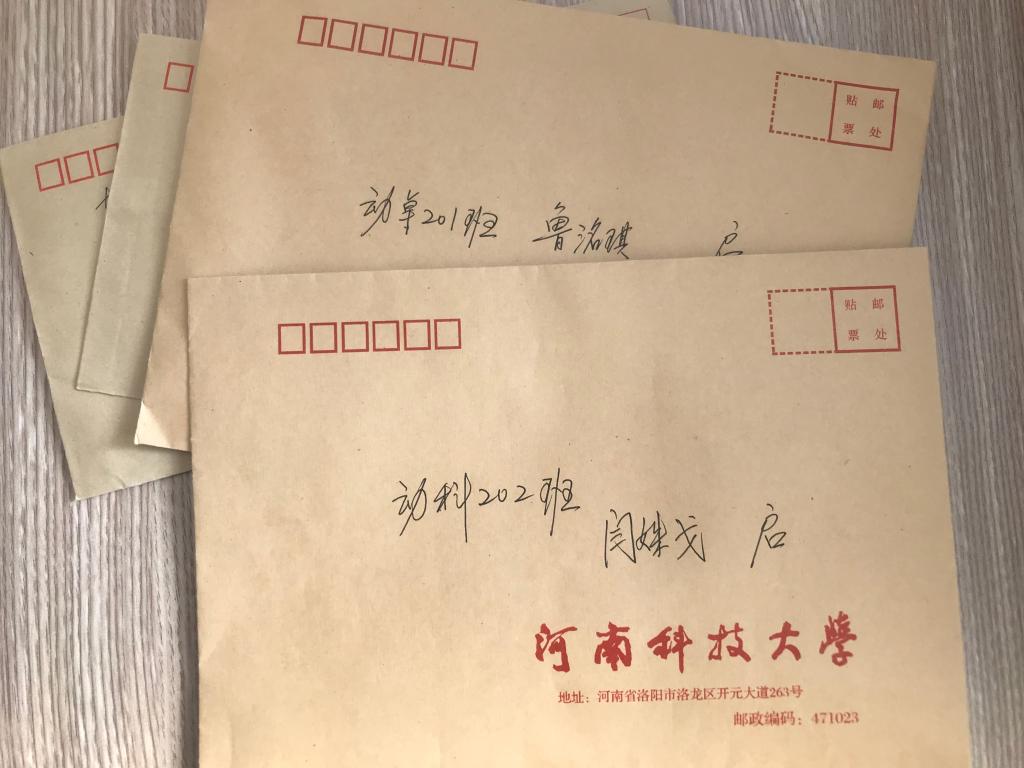 贴 邮
票 处
动卓201班 鲁洺琪 启
贴 邮
票 处
动科202班
闫姝戈 启
河南科技大學
地址：河南省洛阳市洛龙区开元大道263号
邮政编码：471023